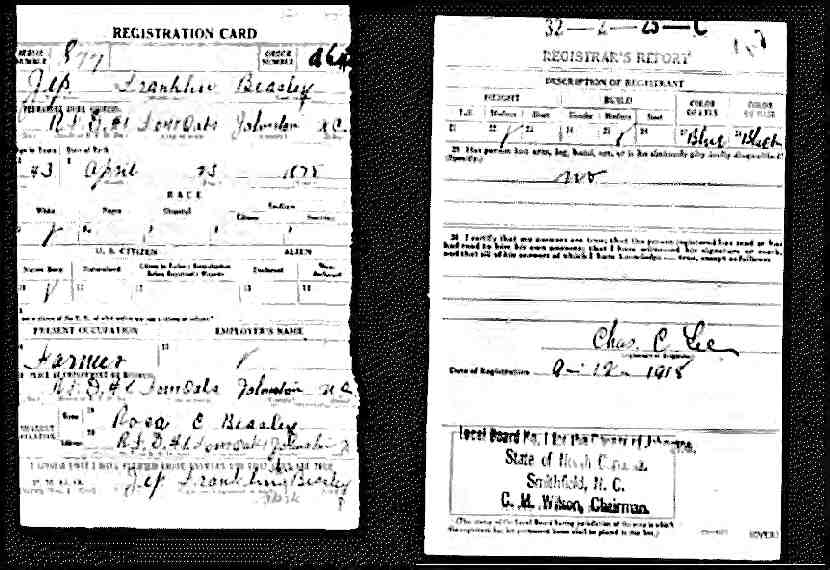 REGISTRATION CARD
SERIAL NUMBER 877 ORDER NUMBER
Jep Franklin Beasley
PERMANENT HOME ADDRESS
R.F.D. #1 Four Oaks Johnston N.C.
Age in Years Date of Birth
43 April 25 1875
RACE
White Negro Oriental Indian
Citizen
U. S. CITIZEN ALIEN
Native Born Naturalized Citizen by Father's Naturalization Before Registrant's Majority Declarant Non-declarant
10 11 12 13 14
PRESENT OCCUPATION EMPLOYER'S NAME
Farmer
PLACE OF EMPLOYMENT OR BUSINESS
R.F.D. #1 Four Oaks Johnston N.C.
NEAREST RELATIVE
Name Rosa E Beasley
Address R.F.D. #1 Four Oaks Johnston
I AFFIRM THAT I HAVE VERIFIED ABOVE ANSWERS AND THAT THEY ARE TRUE
Jep Franklin Beasley
32—2—25—C
REGISTRAR'S REPORT
DESCRIPTION OF REGISTRANT
HEIGHT BUILD COLOR OF EYES COLOR OF HAIR
Tall Medium Short Slender Medium Stout
21 22 23 24 25 26 27 Blue 28 Black
29 Has person lost arm, leg, hand, eye, or is he obviously physically disqualified?
(Specify.)
no
30 I certify that my answers are true; that the person registered has read or has
had read to him his own answers; that I have witnessed his signature or mark,
and that all of his answers of which I have knowledge are true, except as follows:
Chas. C. Lee
Date of Registration 9-12- 1918
Local Board No. 1 for the County of Johnston,
State of North Carolina,
Smithfield, N. C.
C. M. Wilson, Chairman.
(The stamp of the Local Board having jurisdiction of the area in which
the registrant has his permanent home shall be placed in this box.)
(OVER)